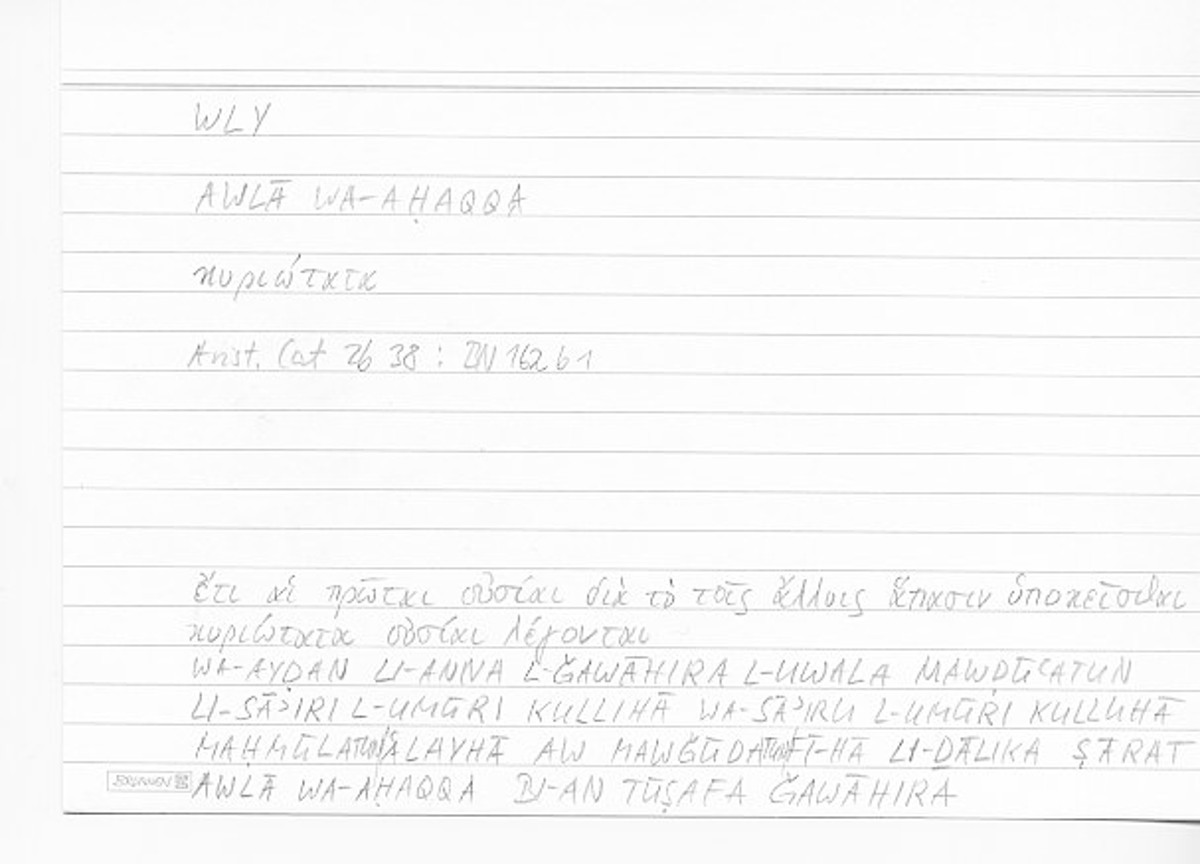 WLY
AWLĀ WA-AḤAQQA
κυριώτατα
Arist. Cat 2b 38 : BN 162 b 1
ἔτι αἱ πρῶται οὐσίαι διὰ τὸ τοῖς ἄλλοις ἅπασιν ὑποκεῖσθαι
κυριώτατα οὐσίαι λέγονται
WA-AYḌAN LI-ANNA L-ǦAWĀHIRA L-UWALA MAWḌŪʿATUN
LI-SĀʾIRI L-UMŪRI KULLIHĀ WA-SĀʾIRU L-UMŪRI KULLUHĀ
MAḤMŪLATUN ʿALAYHĀ AW MAWǦŪDATUN FĪ-HĀ LI-ḎĀLIKA ṢĀRAT
BRUNNEN AWLĀ WA-AḤAQQA BI-AN TŪṢAFA ǦAWĀHIRA